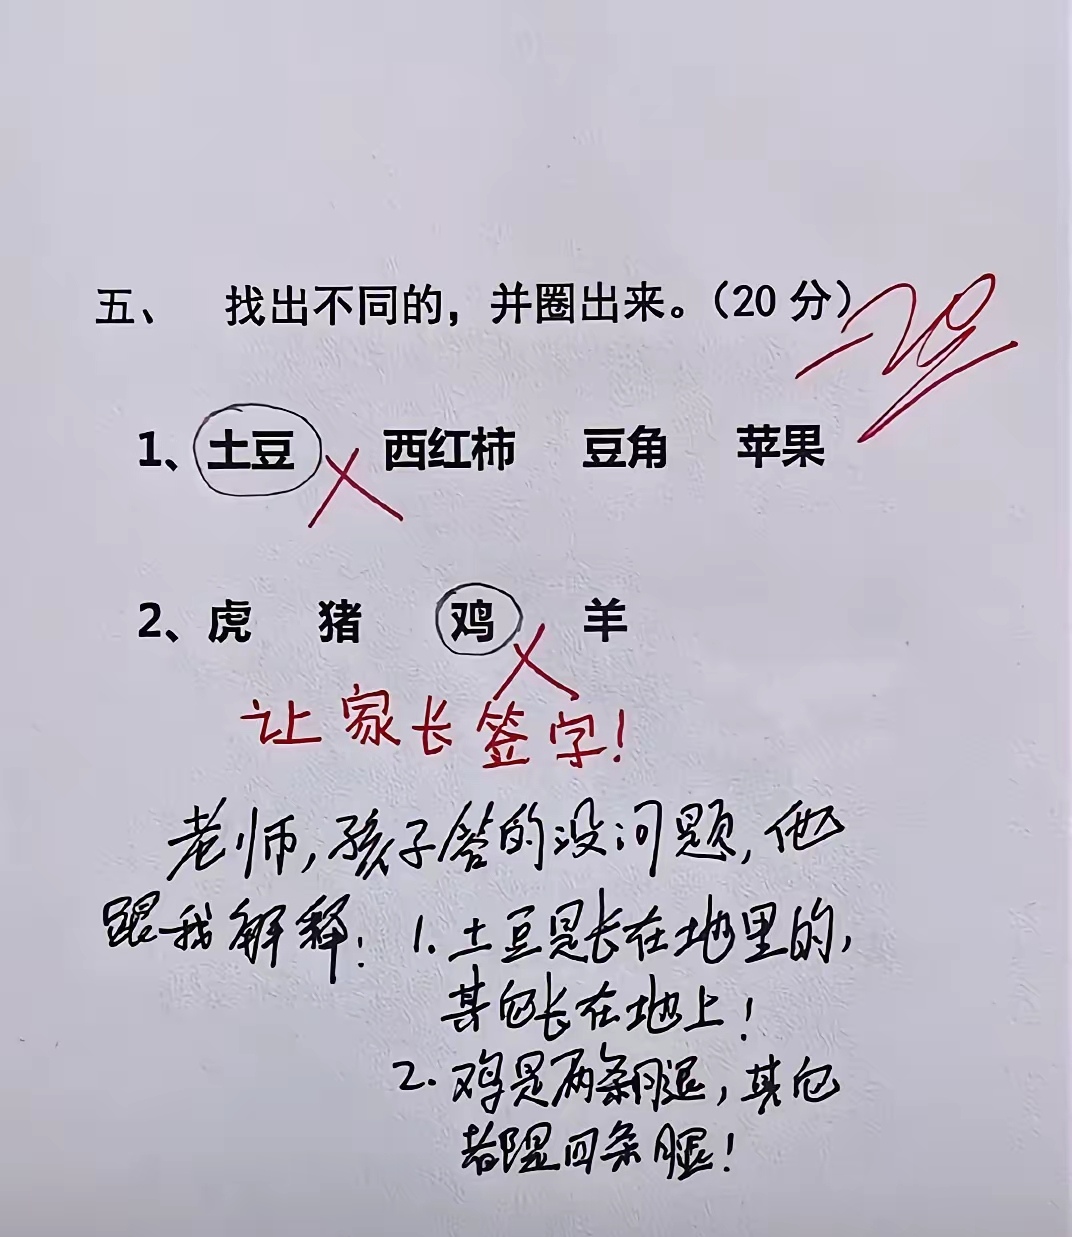 五、 找出不同的，并圈出来。（20 分） -20
1、土豆 西红柿 豆角 苹果
2、虎 猪 鸡 羊
让家长签字！
老师，孩子答的没问题，他
跟我解释：1.土豆是长在地里的，
其它长在地上！
2.鸡是两条腿，其它
都是四条腿！